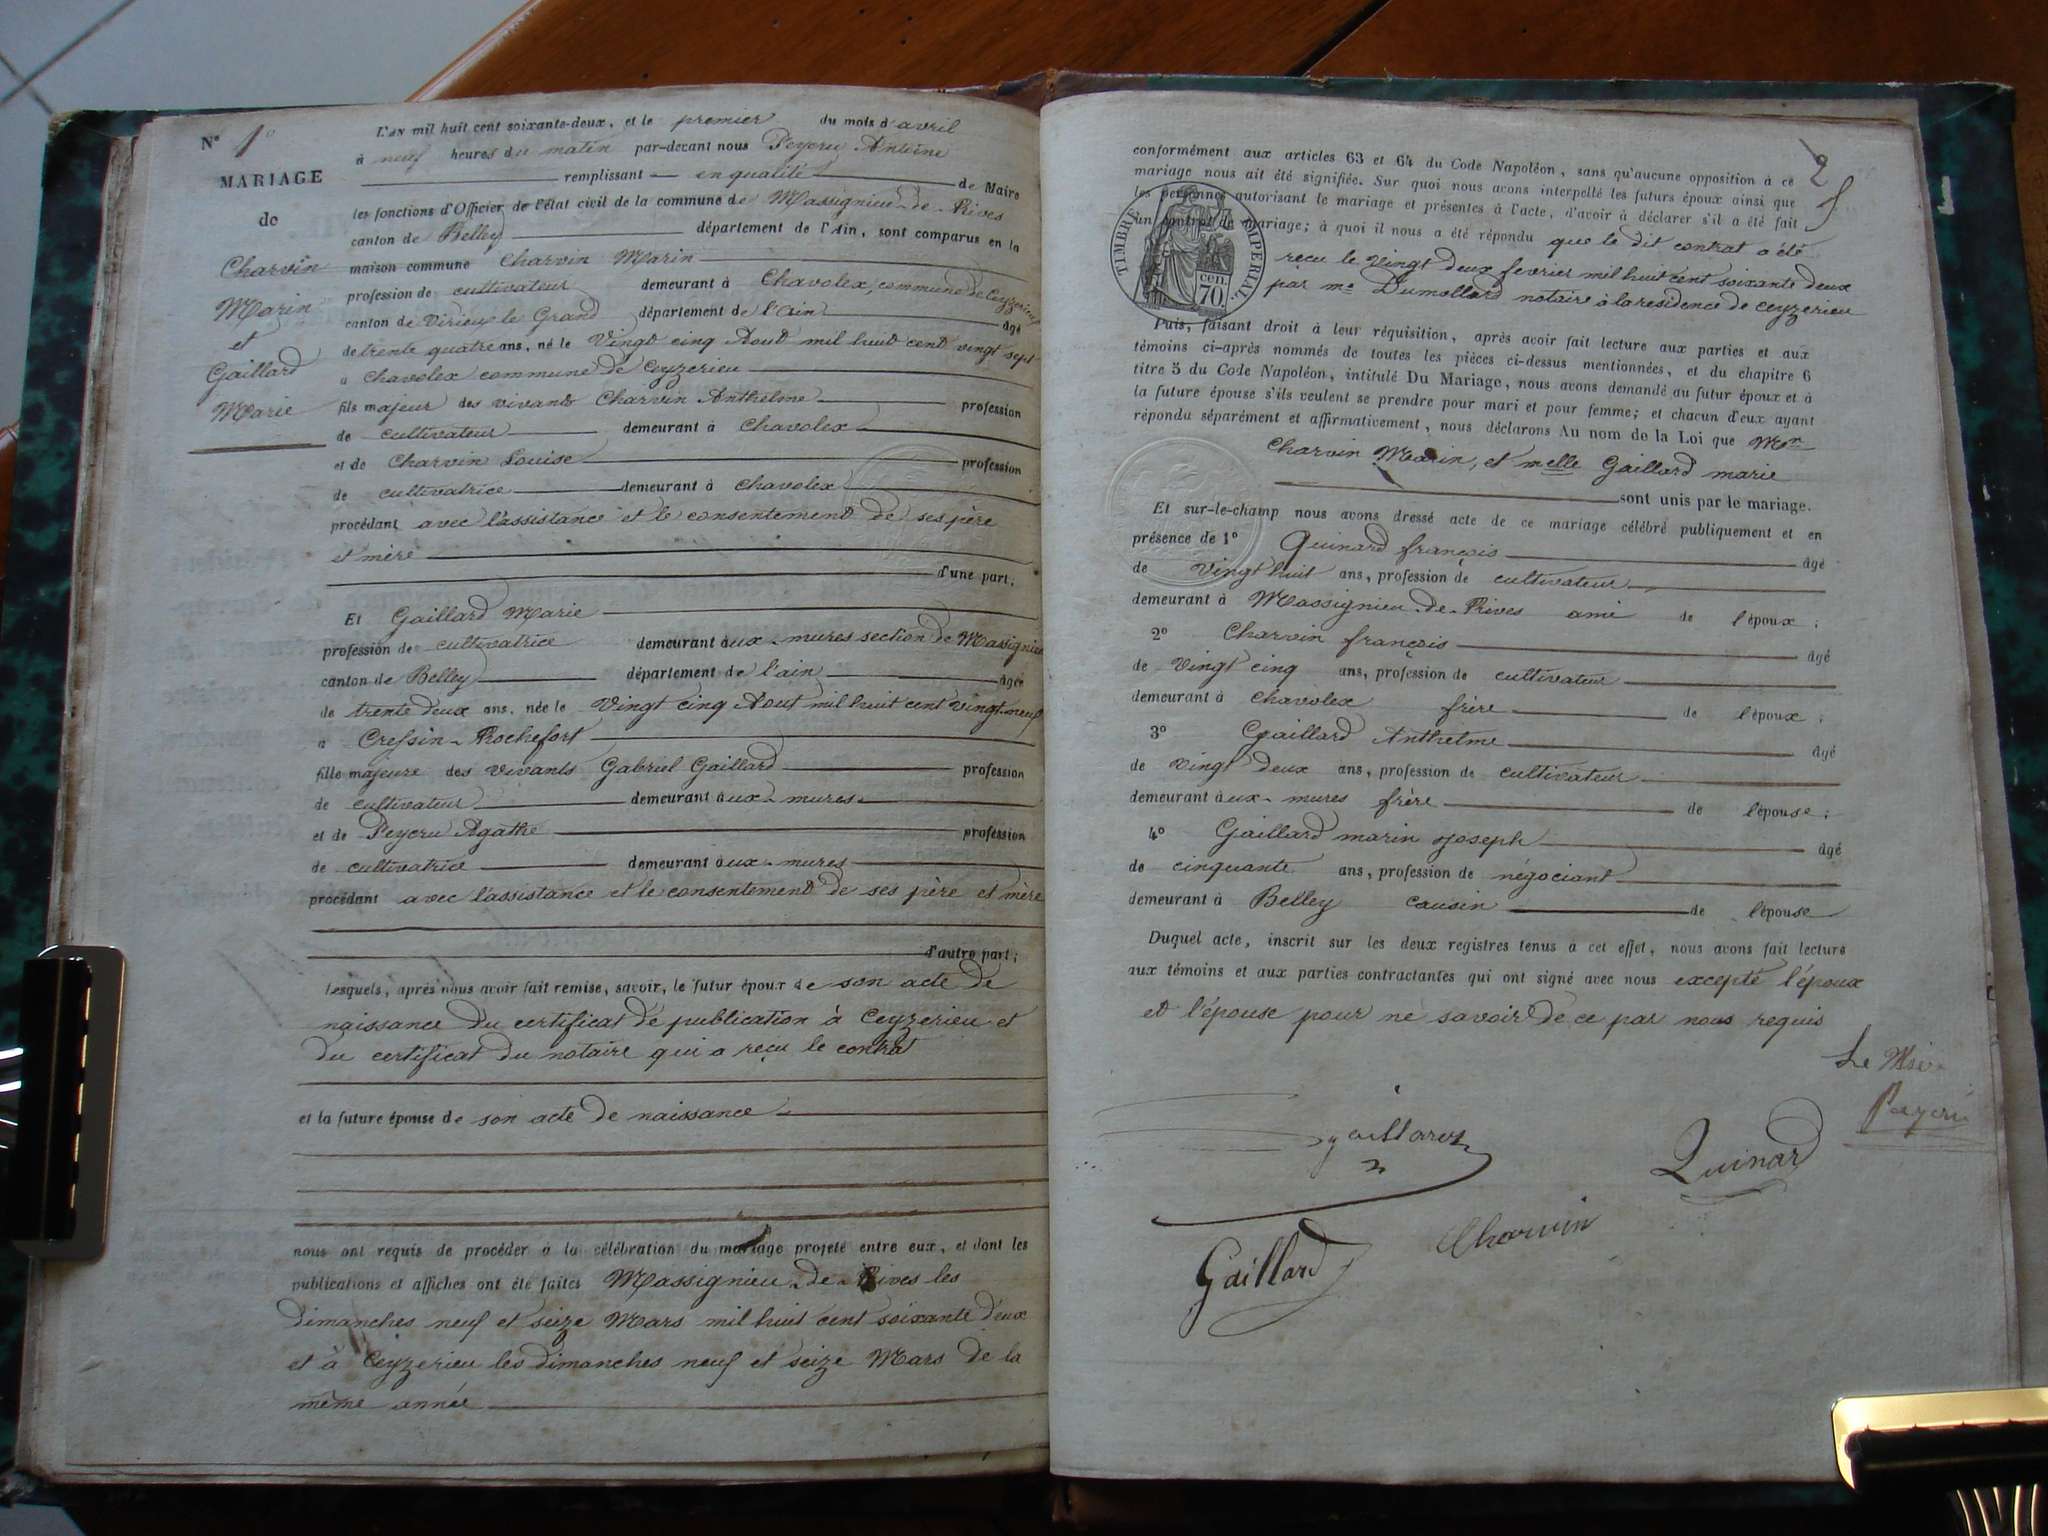 N° 1°
MARIAGE
de
Charvin
Marin
et
Gaillard
Marie
L'an mil huit cent soixante-deux, et le premier du mois d'avril
à neuf heures du matin par-devant nous Peycru Antoine
remplissant en qualité de Maire
les fonctions d'Officier de l'état civil de la commune de Massignieu-de-Rives
canton de Belley département de l'Ain, sont comparus en la
maison commune Charvin Marin
profession de cultivateur demeurant à Chavolex, commune de Ceyzerieu
canton de Virieu le Grand département de l'ain âgé
de trente quatre ans, né le Vingt cinq Aout mil huit cent vingt sept
à Chavolex commune de Ceyzerieu
fils majeur des vivants Charvin Anthelme profession
de cultivateur demeurant à Chavolex
et de Charvin Louise profession
de cultivatrice demeurant à Chavolex
procédant avec l'assistance et le consentement de ses père
et mère
d'une part;
Et Gaillard Marie
profession de cultivatrice demeurant aux-mures section de Massignieu
canton de Belley département de l'ain âgée
de trente deux ans, née le Vingt cinq Aout mil huit cent vingt-neuf
à Cressin-Rochefort
fille majeure des vivants Gabriel Gaillard profession
de cultivateur demeurant aux-mures
et de Peycru Agathe profession
de cultivatrice demeurant aux-mures
procédant avec l'assistance et le consentement de ses père et mère
d'autre part;
Lesquels, après nous avoir fait remise, savoir, le futur époux de son acte de
naissance du certificat de publication à Ceyzerieu et
du certificat du notaire qui a reçu le contrat
et la future épouse de son acte de naissance
nous ont requis de procéder à la célébration du mariage projeté entre eux, et dont les
publications et affiches ont été faites Massignieu-de-Rives les
dimanches neuf et seize Mars mil huit cent soixante deux
et à Ceyzerieu les dimanches neuf et seize Mars de la
même année
2
conformément aux articles 63 et 64 du Code Napoléon, sans qu'aucune opposition à ce
mariage nous ait été signifiée. Sur quoi nous avons interpellé les futurs époux ainsi que
les personnes autorisant le mariage et présentes à l'acte, d'avoir à déclarer s'il a été fait
un contrat de mariage; à quoi il nous a été répondu que le dit contrat a été
reçu le vingt deux fevrier mil huit cent soixante deux
par me Dumollard notaire à la residence de ceyzerieu
TIMBRE IMPERIAL
70 cen.
Puis, faisant droit à leur réquisition, après avoir fait lecture aux parties et aux
témoins ci-après nommés de toutes les pièces ci-dessus mentionnées, et du chapitre 6
titre 5 du Code Napoléon, intitulé Du Mariage, nous avons demandé au futur époux et à
la future épouse s'ils veulent se prendre pour mari et pour femme; et chacun d'eux ayant
répondu séparément et affirmativement, nous déclarons Au nom de la Loi que Mr
Charvin Marin, et melle Gaillard marie
sont unis par le mariage.
Et sur-le-champ nous avons dressé acte de ce mariage célébré publiquement et en
présence de 1° Quinard françois âgé
de vingt huit ans, profession de cultivateur
demeurant à Massignieu-de-Rives ami de l'époux;
2° Charvin françois âgé
de vingt cinq ans, profession de cultivateur
demeurant à Chavolex frère de l'époux;
3° Gaillard Anthelme âgé
de vingt deux ans, profession de cultivateur
demeurant aux-mures frère de l'épouse;
4° Gaillard marin joseph âgé
de cinquante ans, profession de négociant
demeurant à Belley cousin de l'épouse
Duquel acte, inscrit sur les deux registres tenus à cet effet, nous avons fait lecture
aux témoins et aux parties contractantes qui ont signé avec nous excepté l'époux
et l'épouse pour ne savoir de ce par nous requis
Le Maire
Peycru
gaillard
Quinard
Charvin
Gaillard